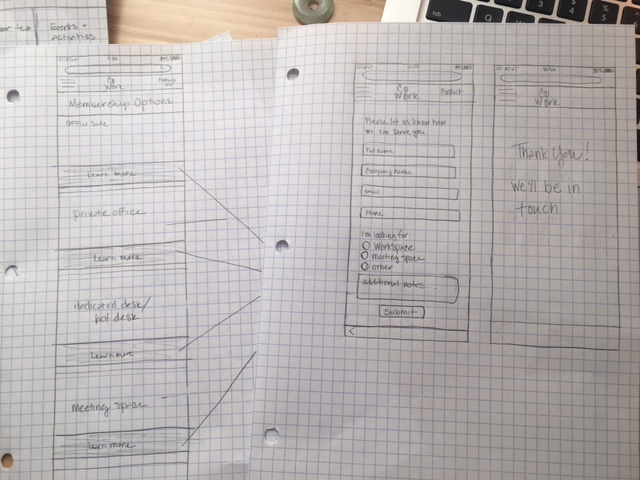 Events +
Activities
Co
Work
Membership Options
Office Suite
Learn more
private office
Learn more
dedicated desk/
hot desk
Learn more
meeting space
Learn more
Co
Work
Contact
Please let us know how
we can serve you
Full name
Company Name
email
Phone
I'm looking for
Workspace
meeting space
other
additional notes...
Submit
<
Co
Work
Thank You!
We'll be in
touch
Q